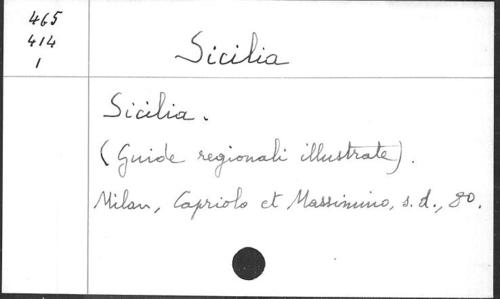 465
414
1
Sicilia
Sicilia.
(Guide regionali illustrate).
Milan, Capriolo et Massimino, s.d., 8o.